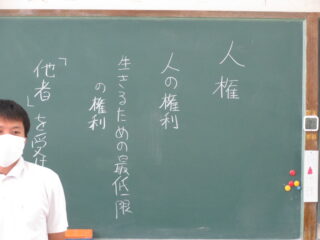 人権
人の権利
生きるための最低限
の権利
「他者」を受